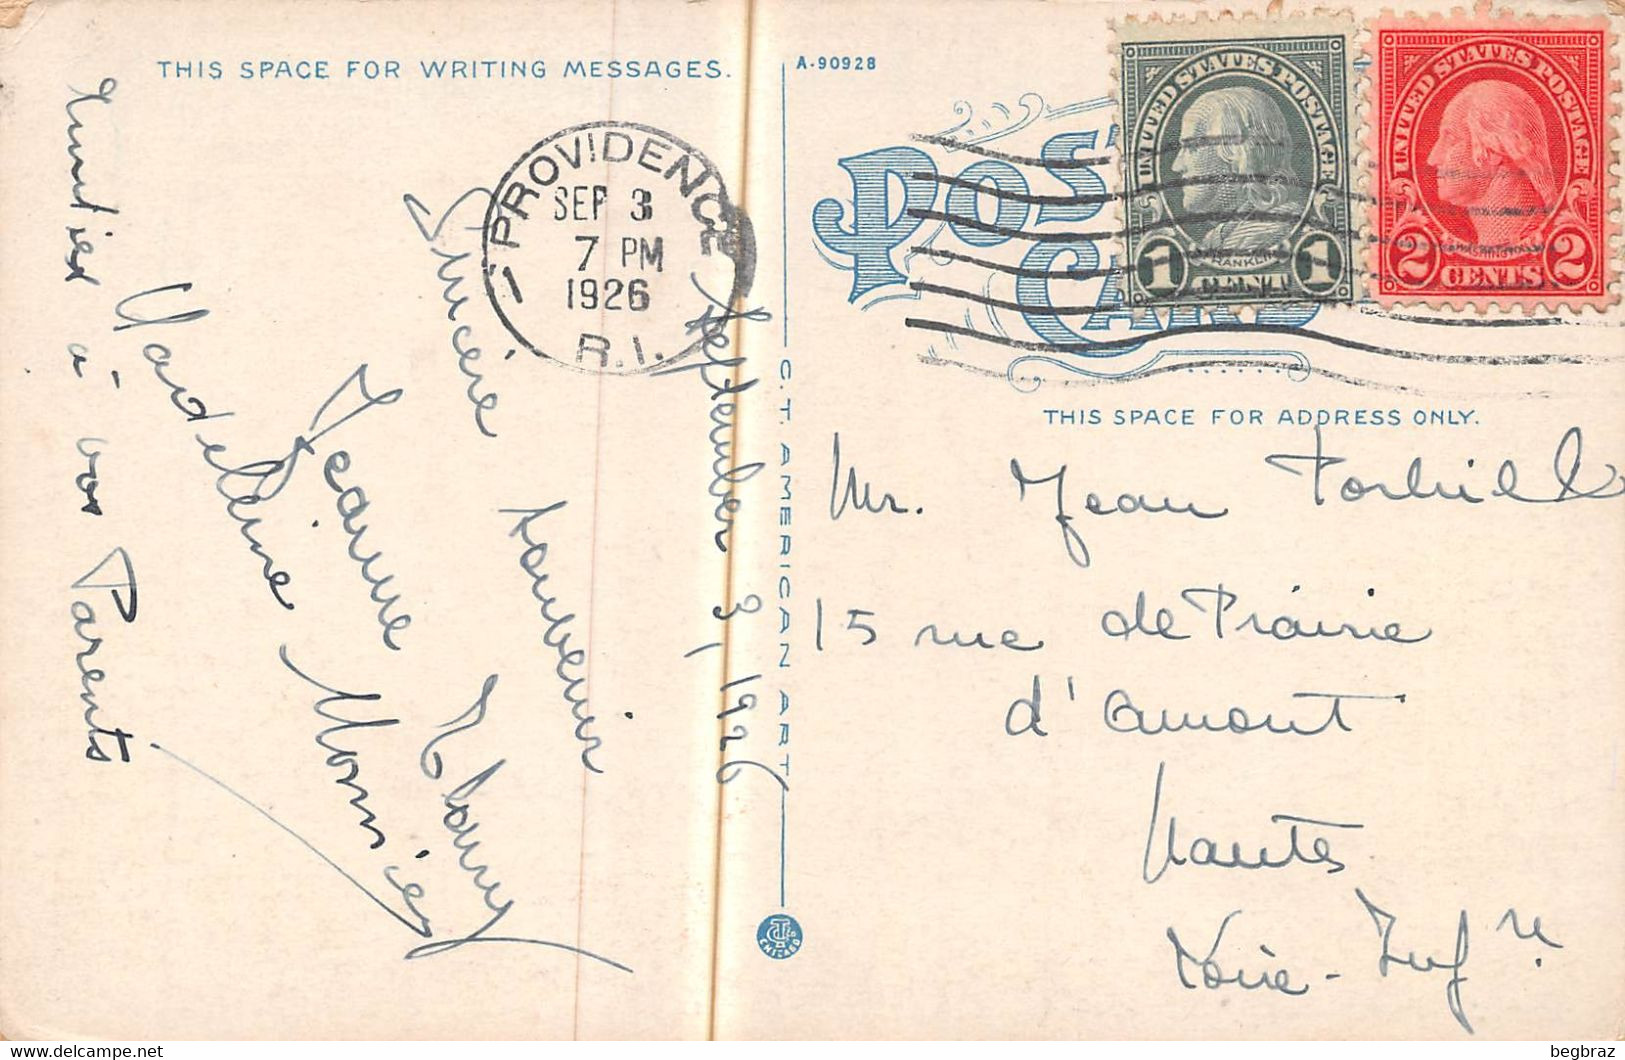 THIS SPACE FOR WRITING MESSAGES.
A-90928
POST CARD
UNITED STATES POSTAGE
FRANKLIN
1 1
UNITED STATES POSTAGE
WASHINGTON
2 CENTS 2
PROVIDENCE
SEP 3
7 PM
1926
R.I.
THIS SPACE FOR ADDRESS ONLY.
C. T. AMERICAN ART
CHICAGO
September 3, 1926
Sincère souvenir
Jeanne
Madeleine Monnier
à vos Parents
Mr. Jean
15 rue de Prairie
d'Amont
Nantes
Loire-Infre
begbraz